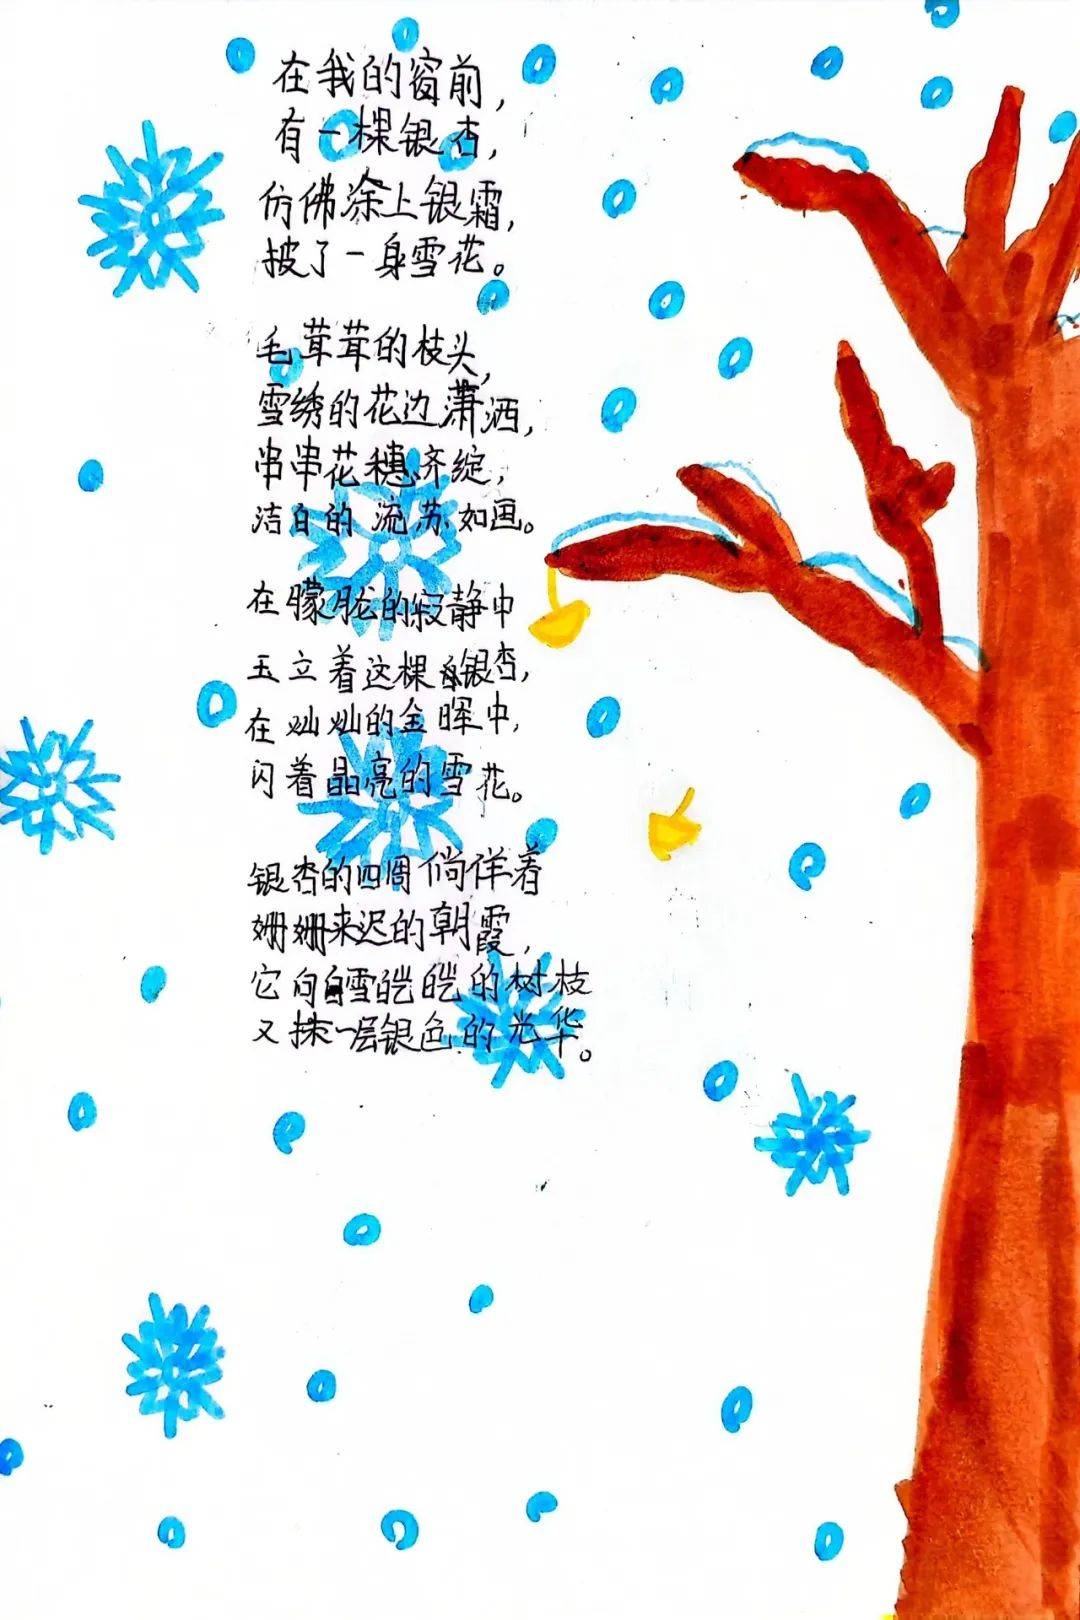 在我的窗前，
有一棵银杏，
仿佛涂上银霜，
披了一身雪花。
毛茸茸的枝头，
雪绣的花边潇洒，
串串花穗齐绽，
洁白的流苏如画。
在朦胧的寂静中
玉立着这棵银杏，
在灿灿的金晖中，
闪着晶亮的雪花。
银杏的四周徜徉着
姗姗来迟的朝霞，
它向白雪皑皑的树枝
又抹一层银色的光华。